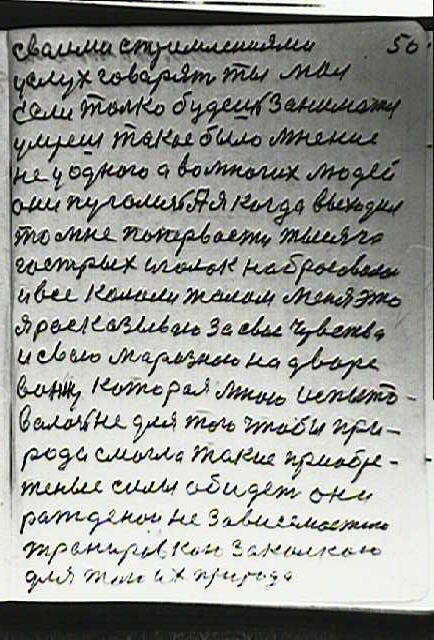 своими стримлениями 50
услух говарят ты мол
если толко будеш заниматя
умреш такое было мнение
не у одного а во многих людей
они пугалисьА я когда выходил
то мне попервости тысяча
гострых иголок набросовалос
и все кололи жалом меня это
я росказываю за свое чувства
и свою марозною на дворе
ванну которая мною испыто-
валась не для того чтобы при-
рода смогла такие приобре-
теные силы обидет они
ражденои не зависемостью
транировкою закалкаю
для того их природа